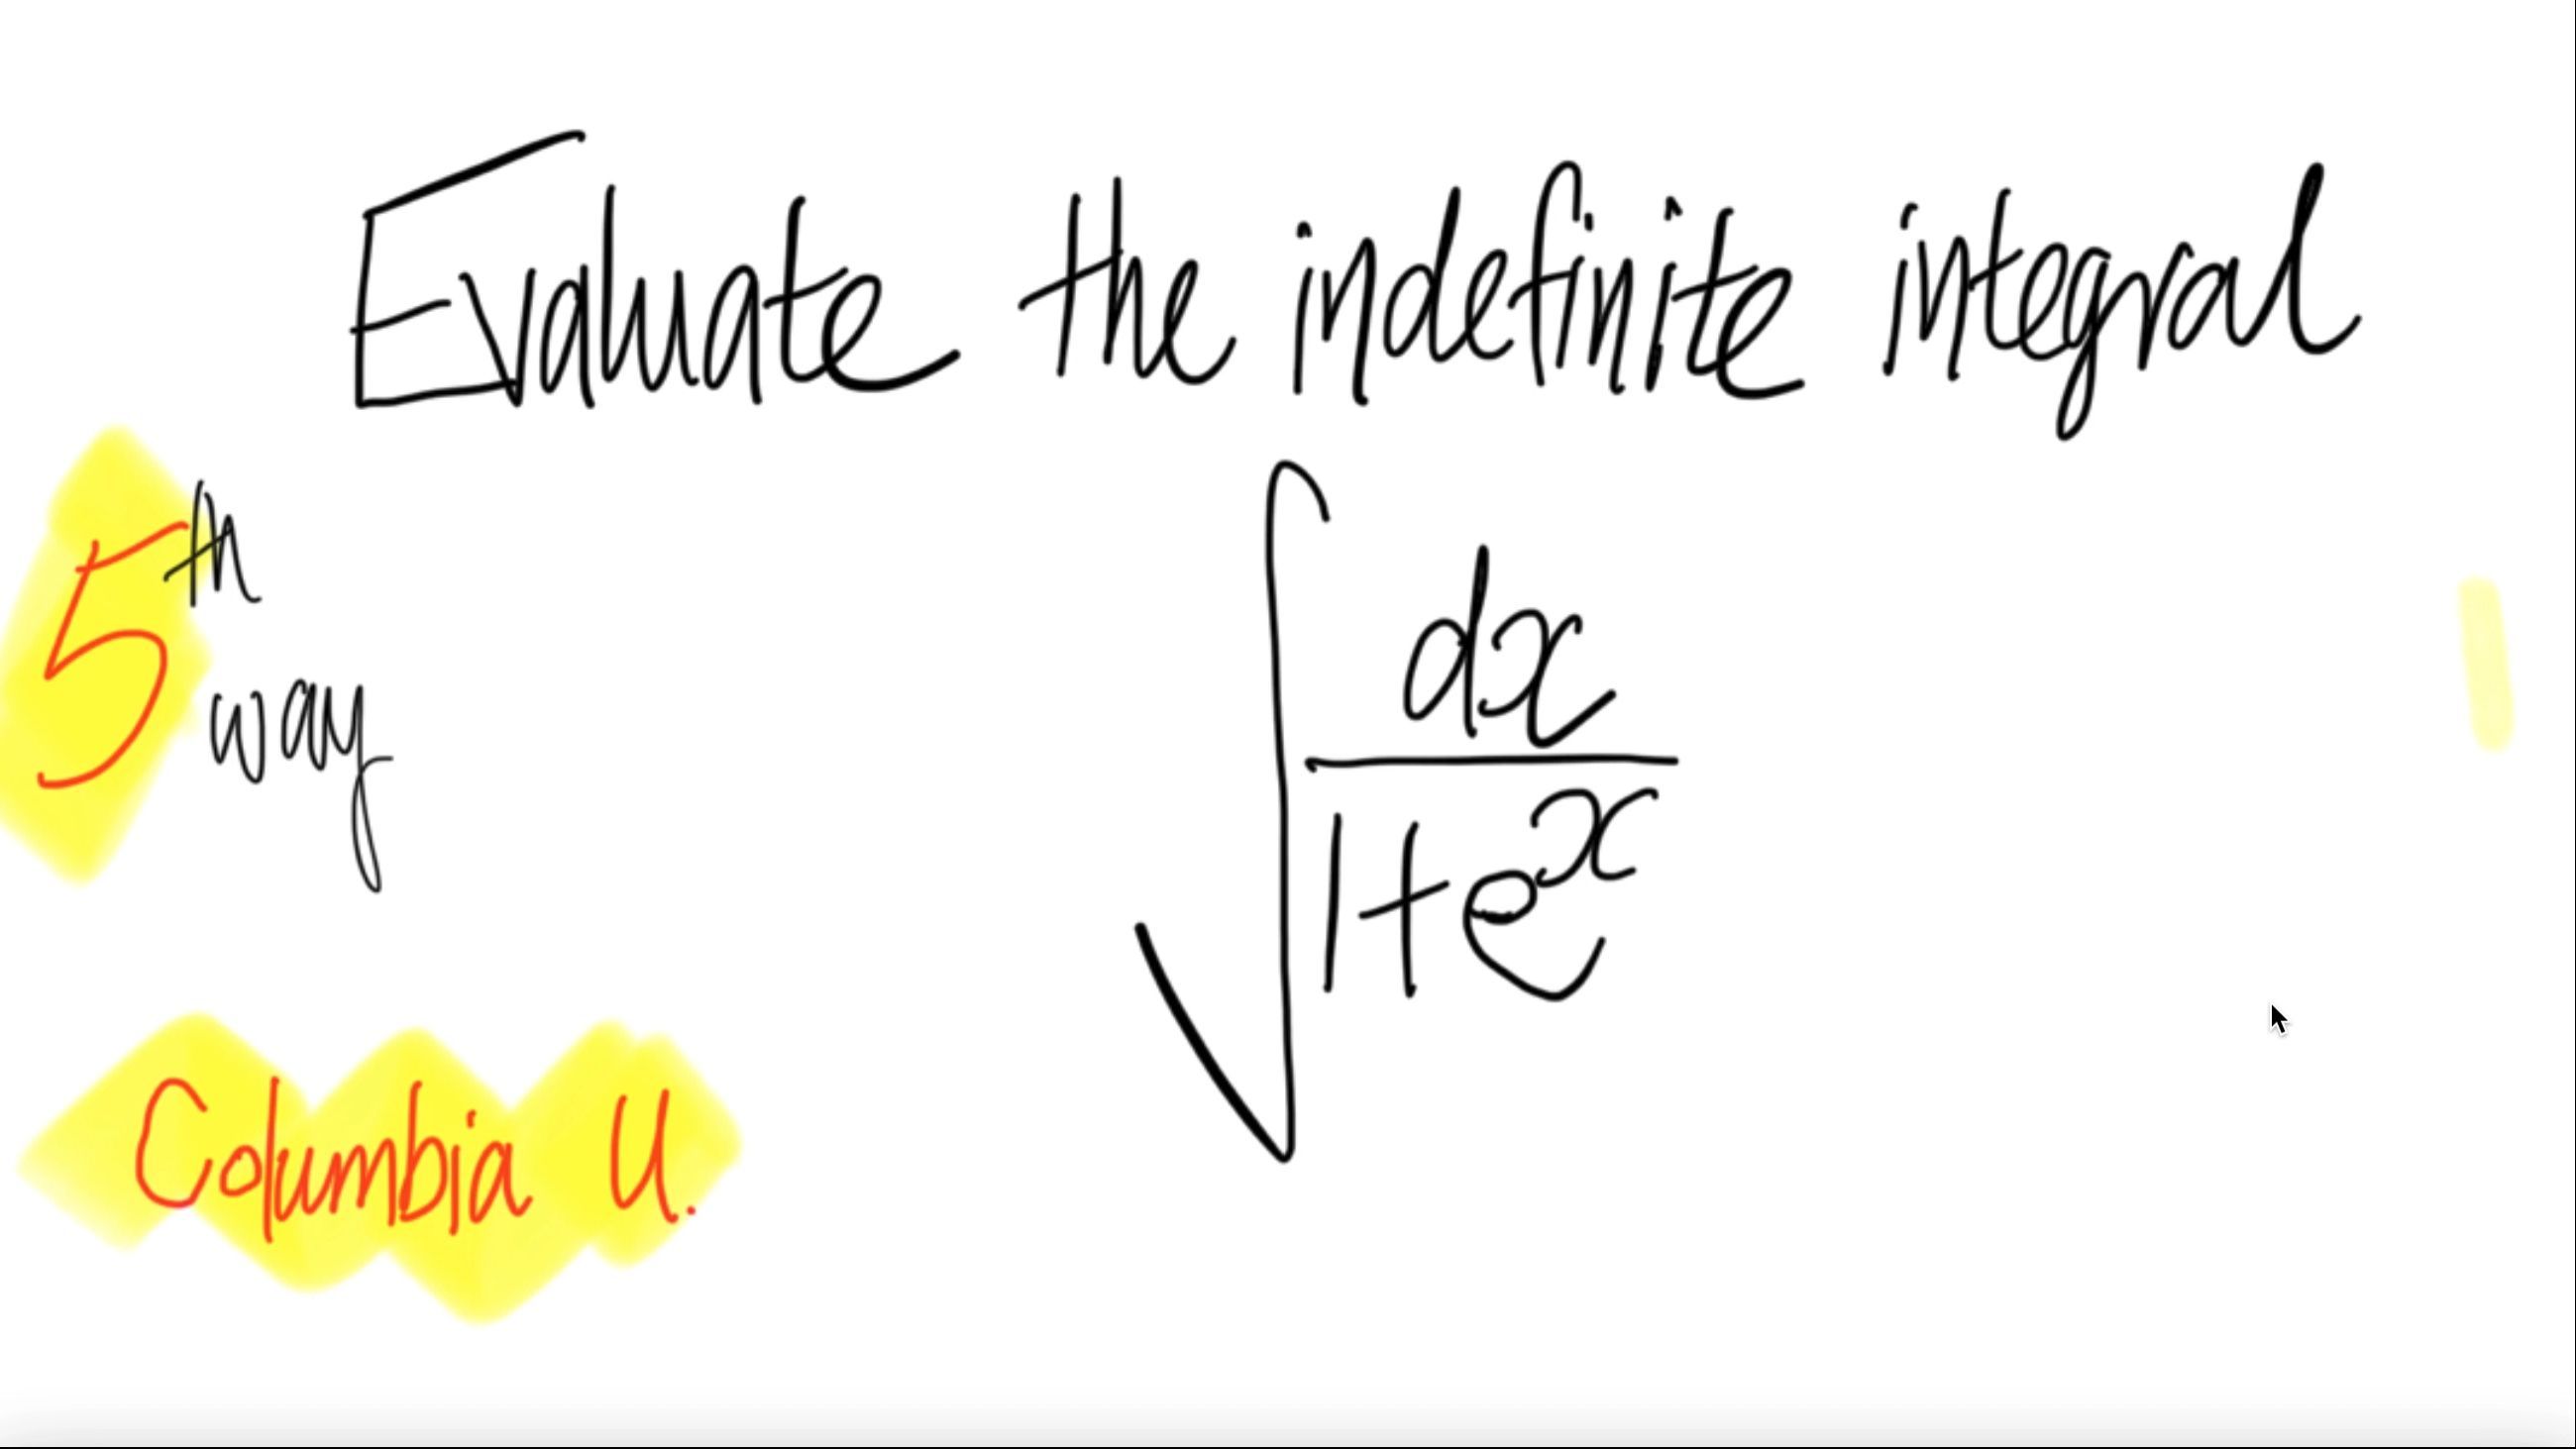 Evaluate the indefinite integral
5th
way
∫ dx
1+e^x
Columbia U.